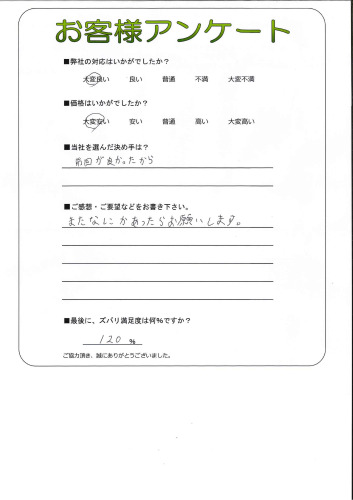 お客様アンケート
■弊社の対応はいかがでしたか?
大変良い 良い 普通 不満 大変不満
■価格はいかがでしたか?
大変安い 安い 普通 高い 大変高い
■当社を選んだ決め手は?
前回が良かったから
■ご感想・ご要望などをお書き下さい。
またなにかあったらお願いします。
■最後に、ズバリ満足度は何%ですか?
120 %
ご協力頂き、誠にありがとうございました。